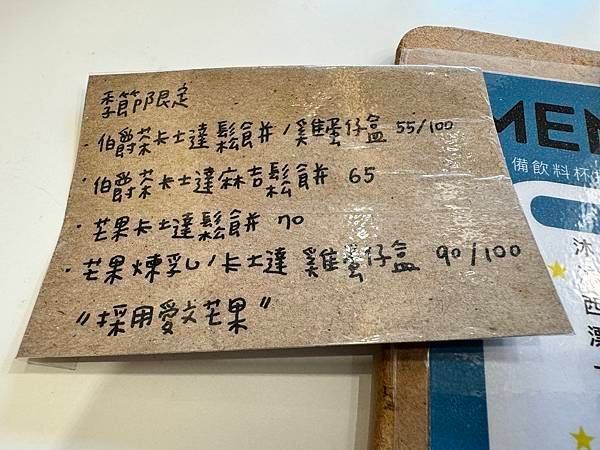 季節限定
·伯爵茶卡士達鬆餅/雞蛋仔盒 55/100
·伯爵茶卡士達麻吉鬆餅 65
·芒果卡士達鬆餅 70
·芒果煉乳/卡士達 雞蛋仔盒 90/100
"採用愛文芒果"
MEN
備飲料杯
沐
西
漂